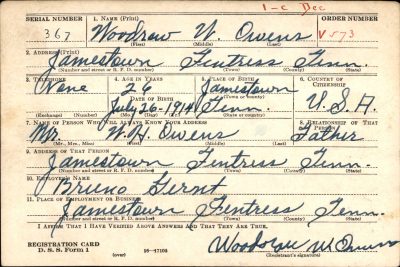 1-C Dec
SERIAL NUMBER 1. NAME (Print) ORDER NUMBER
367 Woodrow W. Owens V573
(First) (Middle) (Last)
2. ADDRESS (Print)
Jamestown Fentress Tenn.
(Number and street or R. F. D. number) (Town) (County) (State)
3. TELEPHONE 4. AGE IN YEARS 5. PLACE OF BIRTH 6. COUNTRY OF CITIZENSHIP
None 26 Jamestown
DATE OF BIRTH (Town or county)
July 26-1914 Tenn. U.S.A.
(Exchange) (Number) (Mo.) (Day) (Yr.) (State or country)
7. NAME OF PERSON WHO WILL ALWAYS KNOW YOUR ADDRESS 8. RELATIONSHIP OF THAT PERSON
Mr. W. H. Owens Father
(Mr., Mrs., Miss) (First) (Middle) (Last)
9. ADDRESS OF THAT PERSON
Jamestown Fentress Tenn.
(Number and street or R. F. D. number) (Town) (County) (State)
10. EMPLOYER'S NAME
Bruno Gernt
11. PLACE OF EMPLOYMENT OR BUSINESS
Jamestown Fentress Tenn.
(Number and street or R. F. D. number) (Town) (County) (State)
I AFFIRM THAT I HAVE VERIFIED ABOVE ANSWERS AND THAT THEY ARE TRUE.
REGISTRATION CARD
D. S. S. Form 1 (over) 16-17105 Woodrow W Owens
(Registrant's signature)